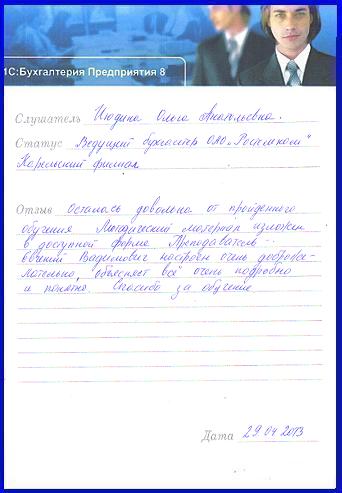 1С:Бухгалтерия Предприятия 8
Слушатель Июдина Ольга Анатольевна.
Статус Ведущий бухгалтер ОАО „Ростелеком"
Карельский филиал
Отзыв Осталась довольна от пройденного
обучения Методический материал изложен
в доступной форме Преподаватель -
Евгений Вадимович настроен очень доброже-
лательно, объясняет всё очень подробно
и понятно. Спасибо за обучение
Дата 29.04 2013